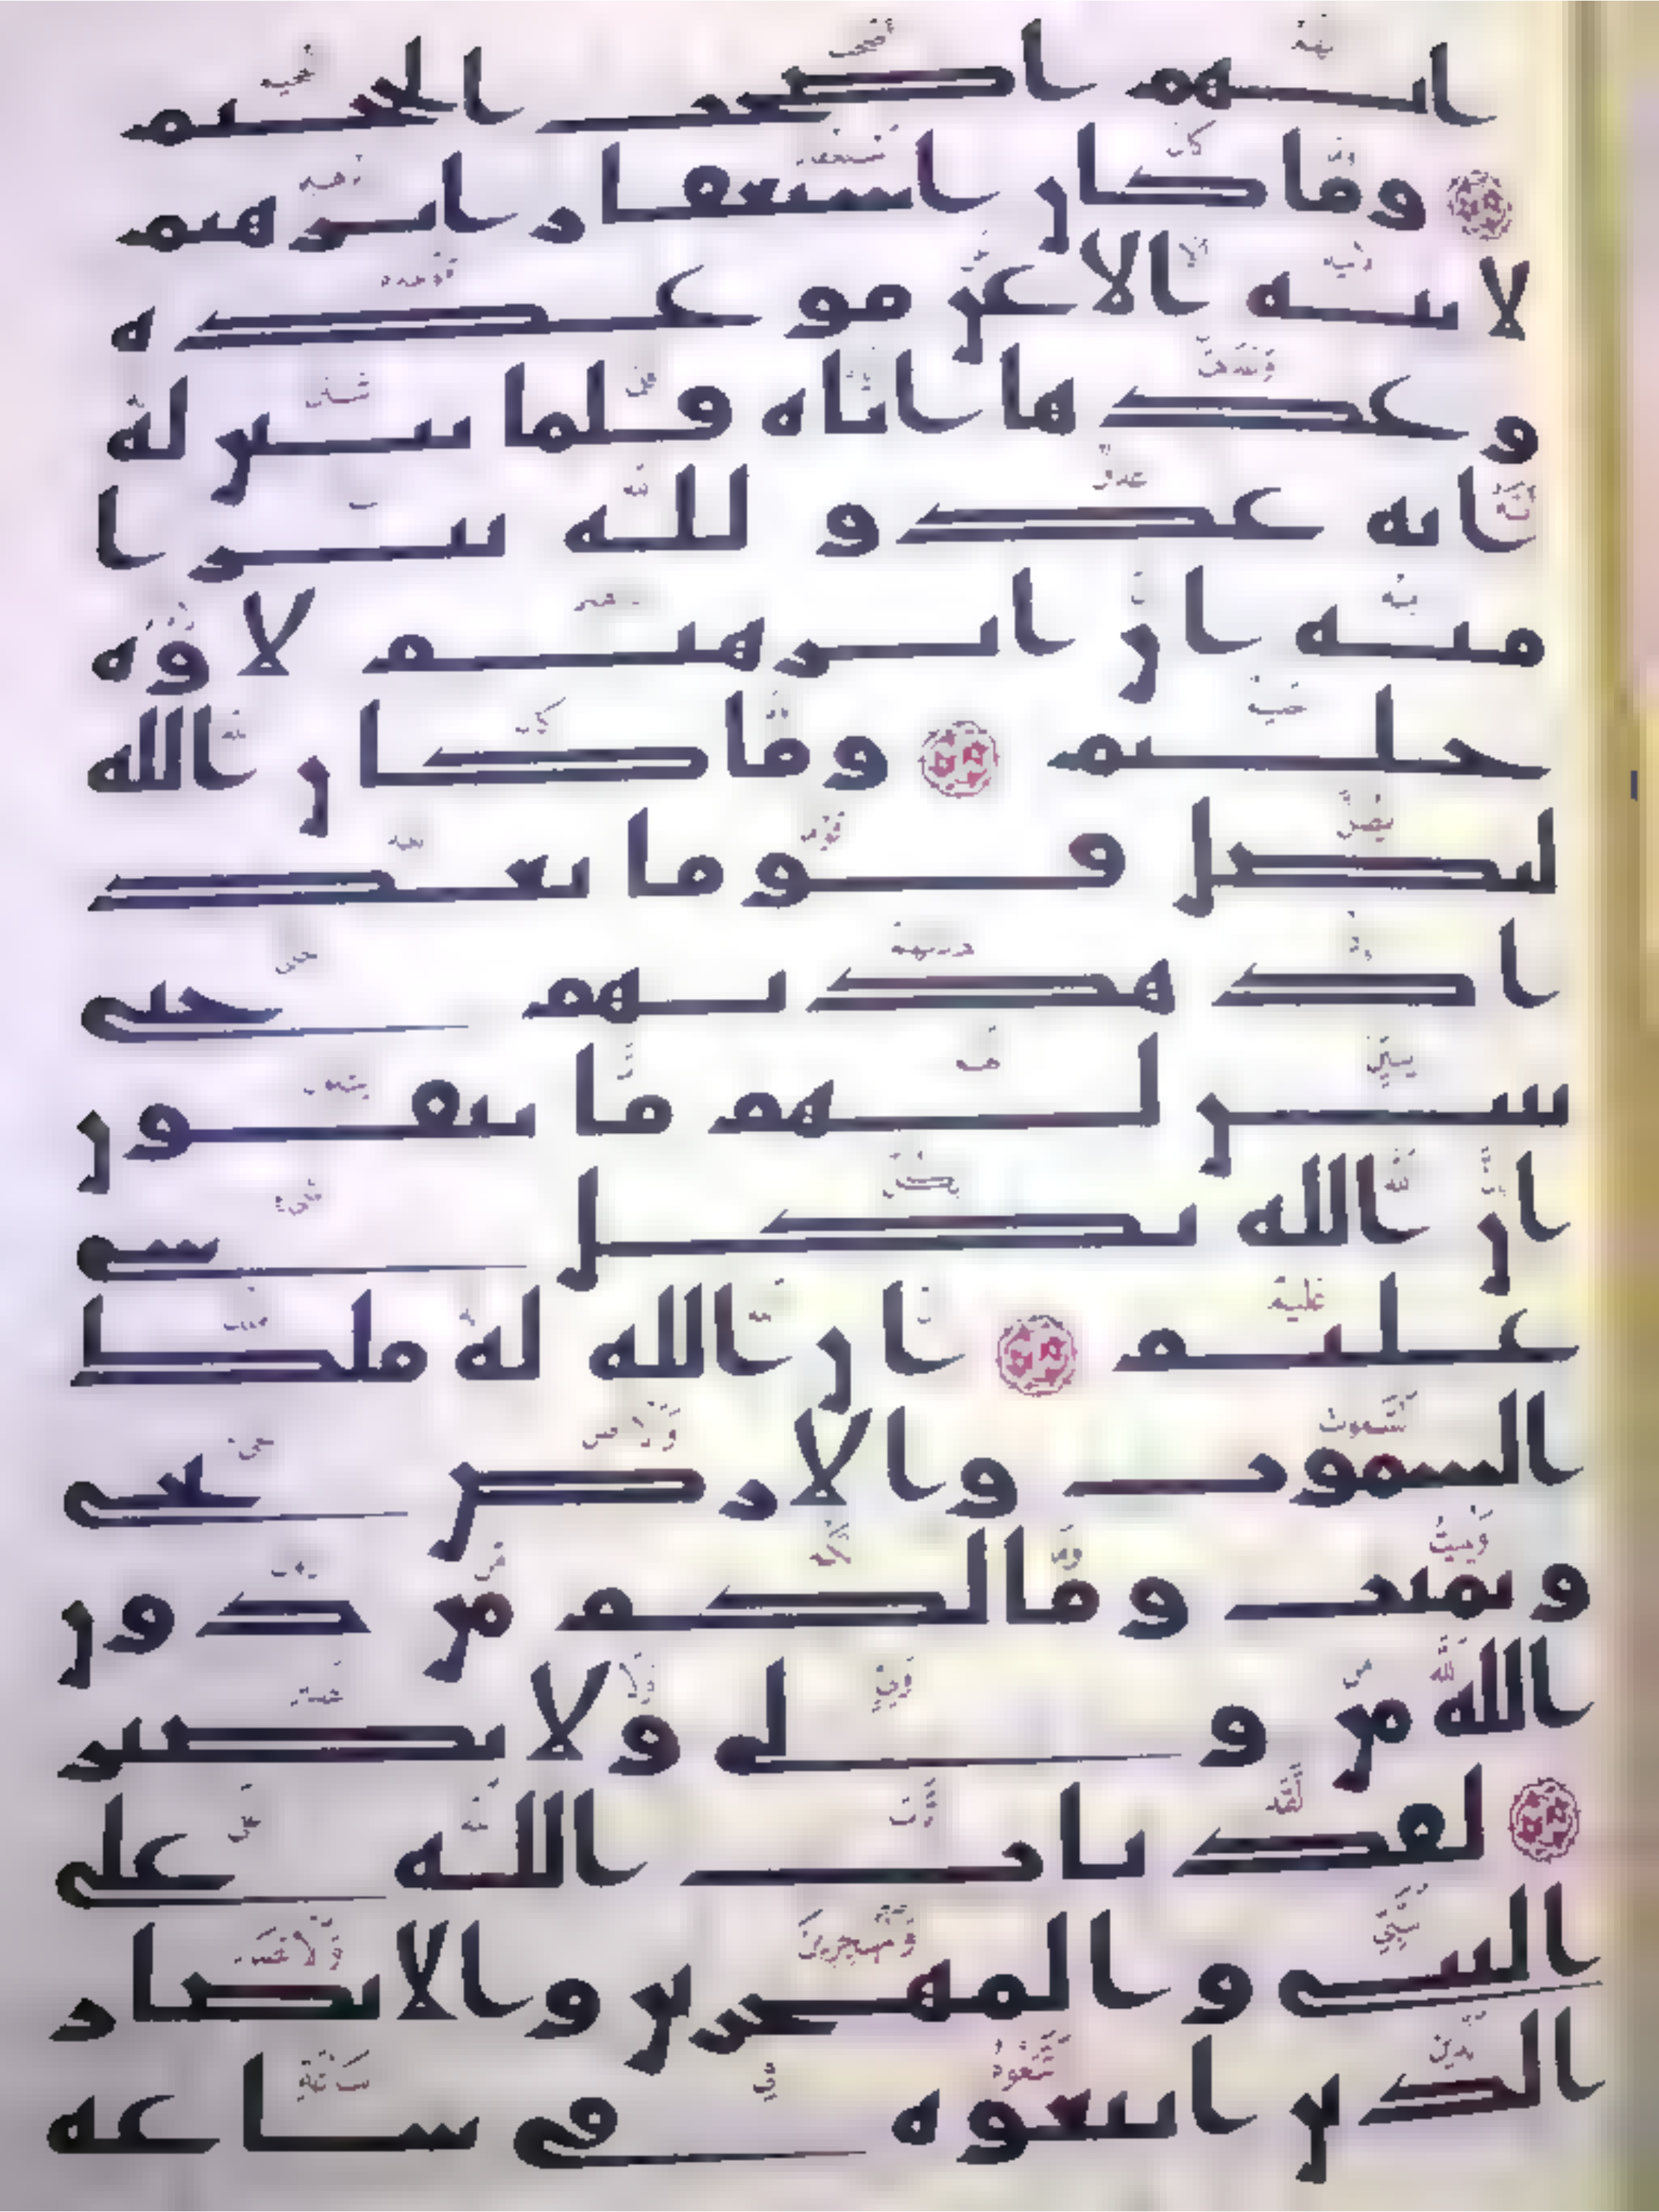 انهم اصحب الجحيم
وما كان استغفار ابرهيم
لابيه الا عن موعده
وعدها اياه فلما تبين له
انه عدو لله تبرا
منه ان ابرهيم لاوه
حليم وما كان الله
ليضل قوما بعد
اذ هديهم حتى
يبين لهم ما يتقون
ان الله بكل شي
عليم ان الله له ملك
السموت والارض يحي
ويميت وما لكم من دون
الله من ولي ولا نصير
لقد تاب الله على
النبي والمهجرين والانصار
الذين اتبعوه في ساعه